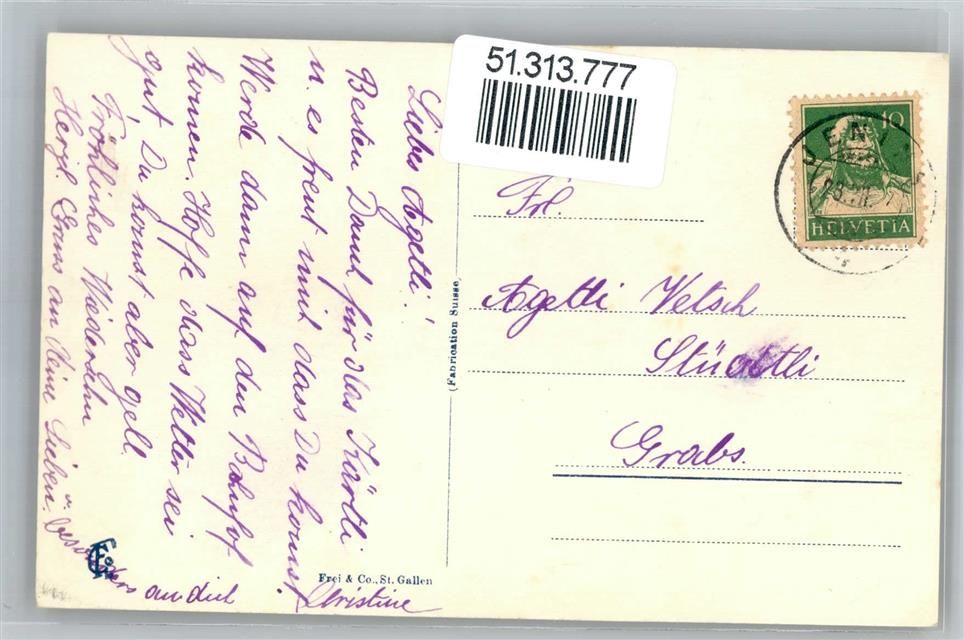 51.313.777
Liebes Agetli!
Besten Dank für das Kärtli
u. es freut mich dass Du komst
Werde dann auf den Bahnhof
kommen. Hoffe dass Wetter sei
gut, Du komst aber gell.
Fröhliches Wiedersehn
Herzl. Gruss an Deine Lieben
u. besonders an dich
Christine
(Fabrication Suisse)
Frei & Co., St. Gallen
10
HELVETIA
Frl.
Agetli Vetsch
Stüdtli
Grabs.